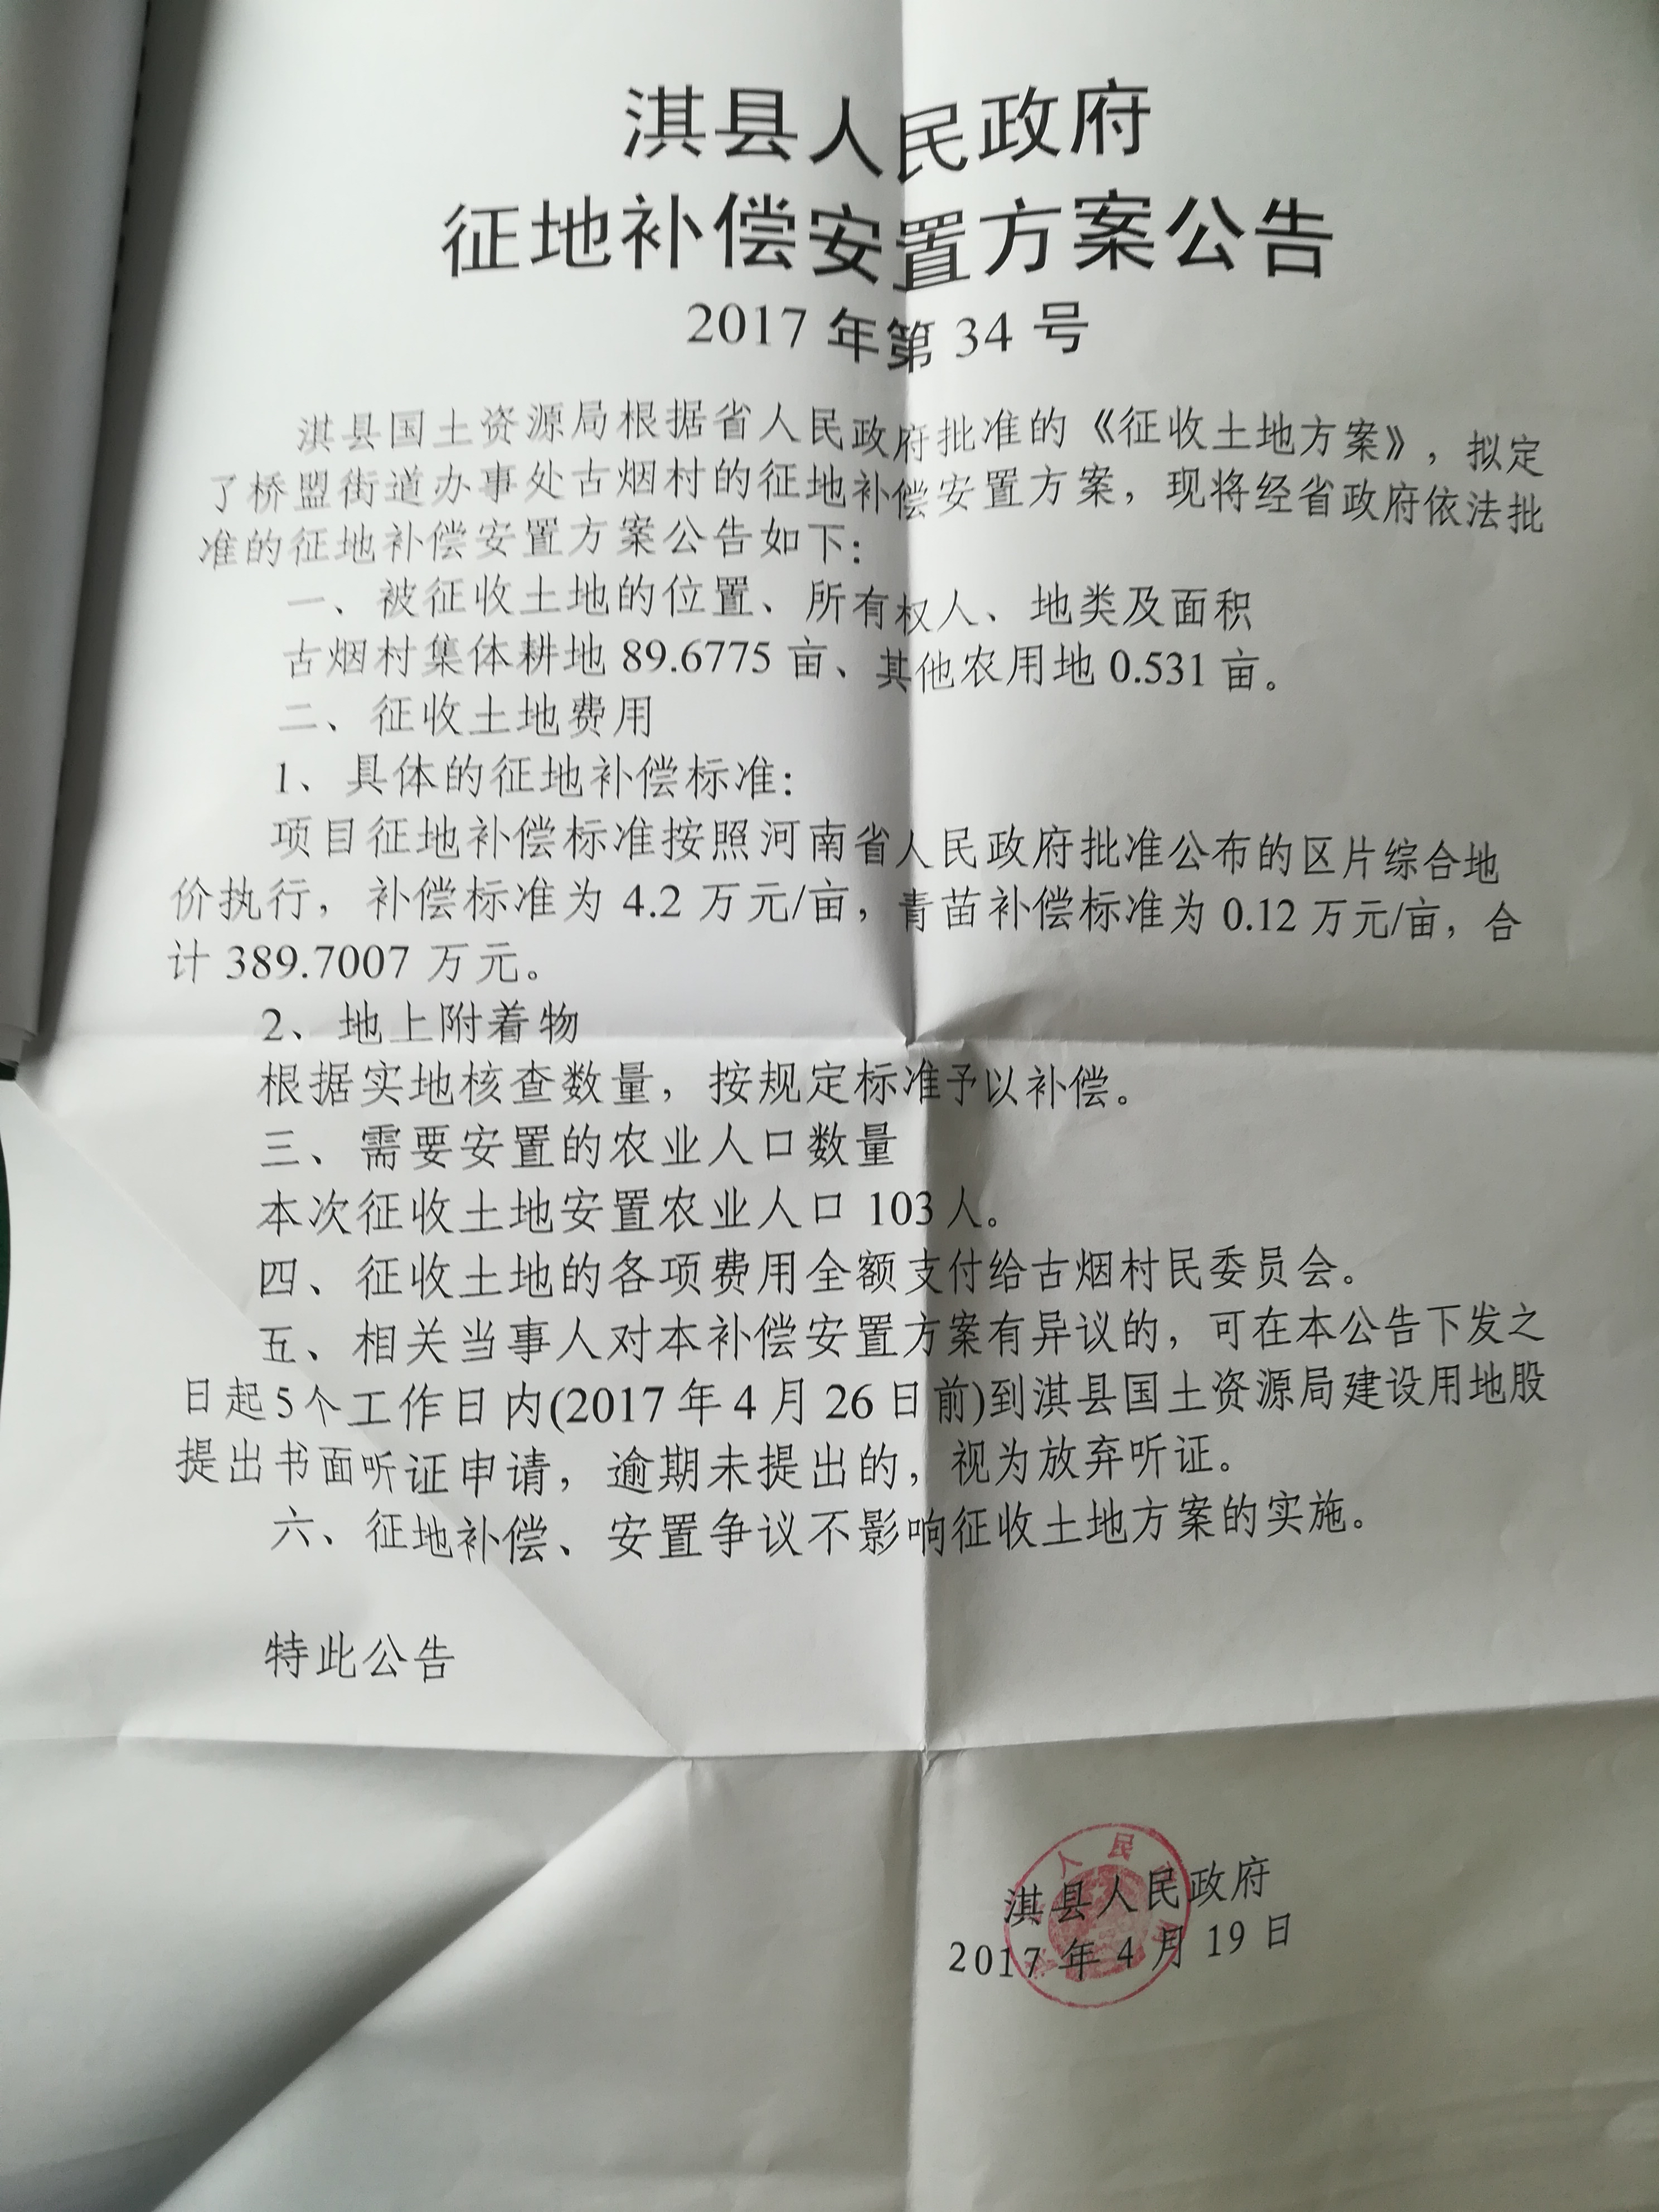 淇县人民政府
征地补偿安置方案公告
2017 年第 34 号
淇县国土资源局根据省人民政府批准的《征收土地方案》，拟定
了桥盟街道办事处古烟村的征地补偿安置方案，现将经省政府依法批
准的征地补偿安置方案公告如下：
一、被征收土地的位置、所有权人、地类及面积
古烟村集体耕地 89.6775 亩、其他农用地 0.531 亩。
二、征收土地费用
1、具体的征地补偿标准：
项目征地补偿标准按照河南省人民政府批准公布的区片综合地
价执行，补偿标准为 4.2 万元/亩，青苗补偿标准为 0.12 万元/亩，合
计 389.7007 万元。
2、地上附着物
根据实地核查数量，按规定标准予以补偿。
三、需要安置的农业人口数量
本次征收土地安置农业人口 103 人。
四、征收土地的各项费用全额支付给古烟村民委员会。
五、相关当事人对本补偿安置方案有异议的，可在本公告下发之
日起 5 个工作日内(2017 年 4 月 26 日前)到淇县国土资源局建设用地股
提出书面听证申请，逾期未提出的，视为放弃听证。
六、征地补偿、安置争议不影响征收土地方案的实施。
特此公告
人民
淇县人民政府
2017 年 4 月 19 日